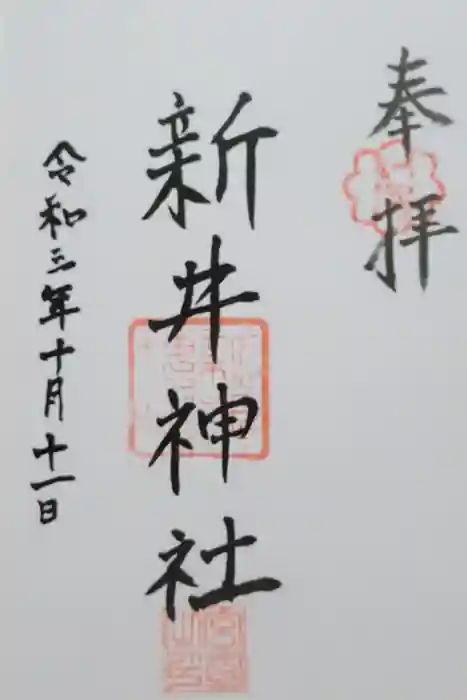 奉拝
新井神社
令和三年十月十一日